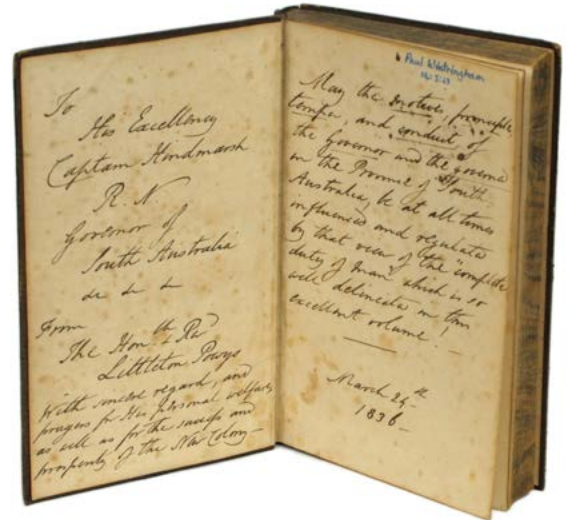 To
His Excellency
Captain Hindmarsh
R. N
Governor of
South Australia
&c &c &c
From
The Honble & Revd
Littleton Powys
With sincere regard, and
prayers for His personal welfare,
as well as for the success and
prosperity of the New Colony—
Paul Wittringham
May the motives, principle
temper, and conduct of
the Governor and the governed
in the Province of South
Australia, be at all times
influenced and regulated
by that view of the "complete
duty of man" which is so
well delineated in this
excellent volume!
March 24th
1836